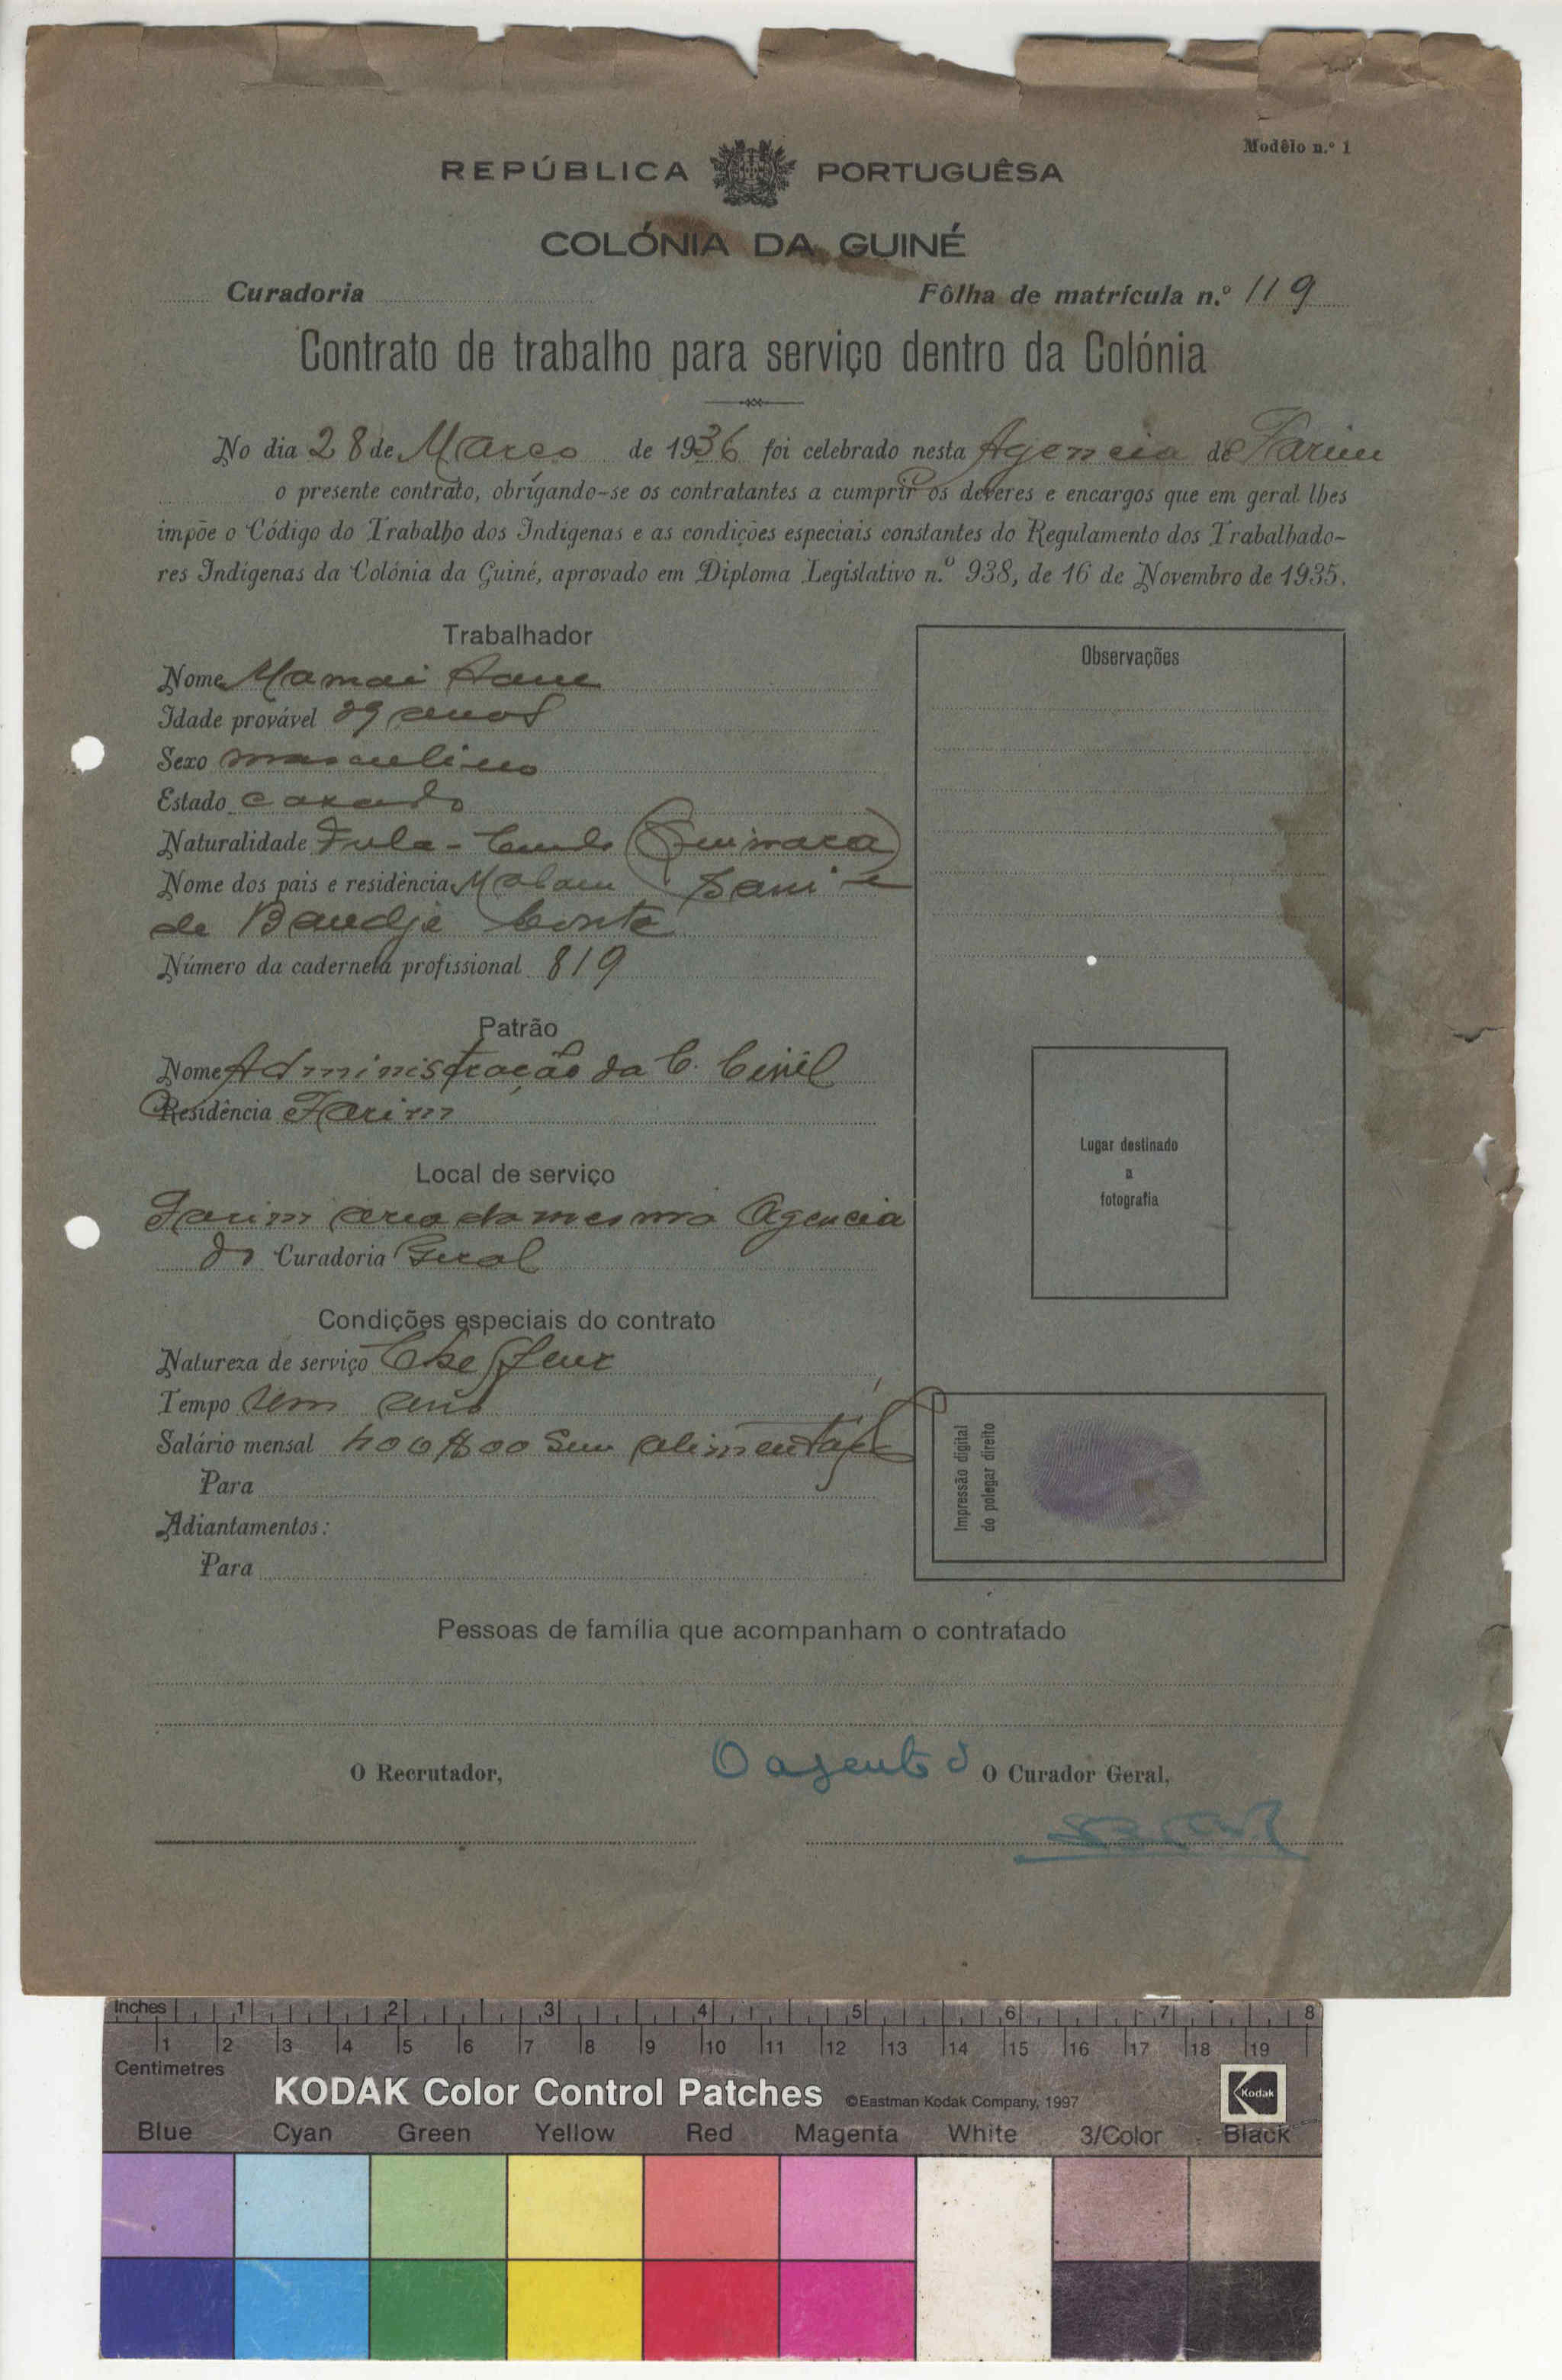 Modêlo n.º 1
REPÚBLICA PORTUGUÊSA
COLÓNIA DA GUINÉ
Curadoria Fôlha de matrícula n.º 119
Contrato de trabalho para serviço dentro da Colónia
No dia 28 de Março de 1936 foi celebrado nesta Agencia de Farim
o presente contrato, obrigando-se os contratantes a cumprir os deveres e encargos que em geral lhes
impõe o Código do Trabalho dos Indígenas e as condições especiais constantes do Regulamento dos Trabalhado-
res Indígenas da Colónia da Guiné, aprovado em Diploma Legislativo n.º 938, de 16 de Novembro de 1935.
Trabalhador
Nome Mamai Sane
Idade provável 29 anos
Sexo masculino
Estado casado
Naturalidade Fula-
Nome dos pais e residência Malam Sani e
de Baudje Conte
Número da caderneta profissional 819
Patrão
Nome Administração da C. Civil
Residência Farim
Local de serviço
Farim area da mesma Agencia
da Curadoria Geral
Condições especiais do contrato
Natureza de serviço Cheffeur
Tempo um ano
Salário mensal 400$00 sem alimentação
Para
Adiantamentos:
Para
Observações
Lugar destinado
a
fotografia
Impressão digital
do polegar direito
Pessoas de família que acompanham o contratado
O Recrutador,
O agente d O Curador Geral,
Inches 1 2 3 4 5 6 7 8
1 2 3 4 5 6 7 8 9 10 11 12 13 14 15 16 17 18 19
Centimetres
KODAK Color Control Patches ©Eastman Kodak Company, 1997 Kodak
Blue Cyan Green Yellow Red Magenta White 3/Color Black